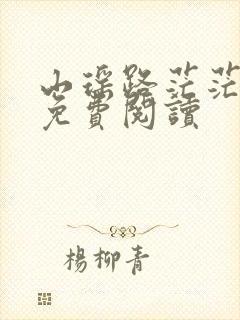 山瑶路茫茫
免費閱讀
楊柳青